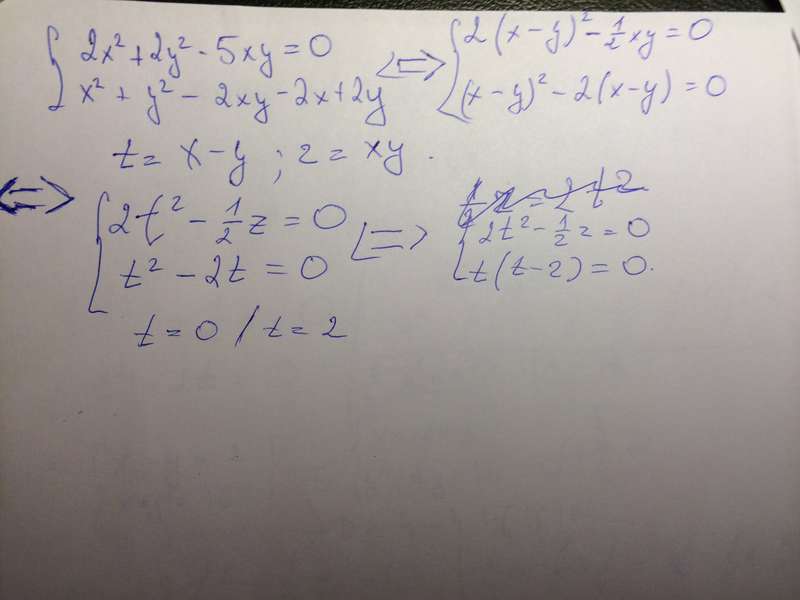 { 2x² + 2y² - 5xy = 0
x² + y² - 2xy - 2x + 2y
<=> { 2(x-y)² - 1/2 xy = 0
(x-y)² - 2(x-y) = 0
t = x - y ; z = xy .
<=> { 2t² - 1/2 z = 0
t² - 2t = 0
<=> { 2t² - 1/2 z = 0
t(t-2) = 0.
t = 0 / t = 2